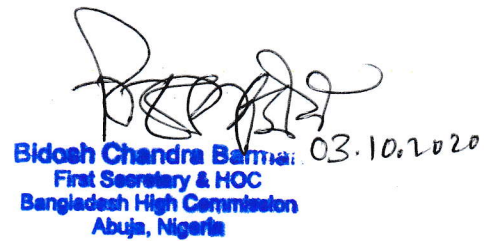 Bidosh Chandra Barman 03.10.2020
First Secretary & HOC
Bangladesh High Commission
Abuja, Nigeria